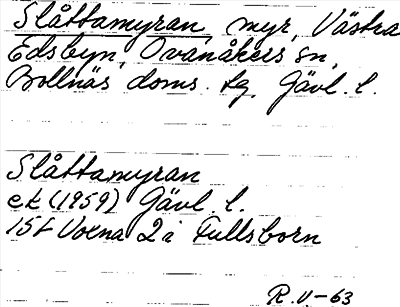 Slåttamyran, myr, Västra
Edsbyn, Ovanåkers sn,
Bollnäs doms. tg. Gävl. l.
Slåttamyran
ek (1959) Gävl. l.
15F Voxna 2 i Fullsborn
R.V.-63